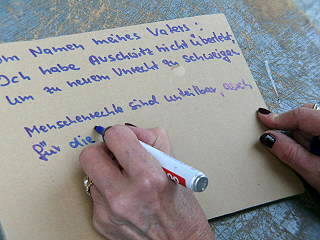 Im Namen meines Vaters:
Ich habe Auschwitz nicht überlebt,
um zu neuem Unrecht zu schweigen
Menschenrechte sind unteilbar auch
für die